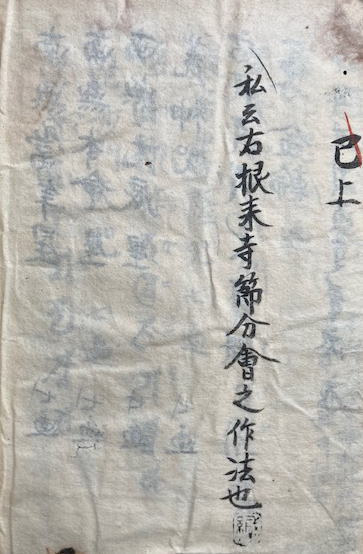 已上
私云右根来寺節分會之作法也